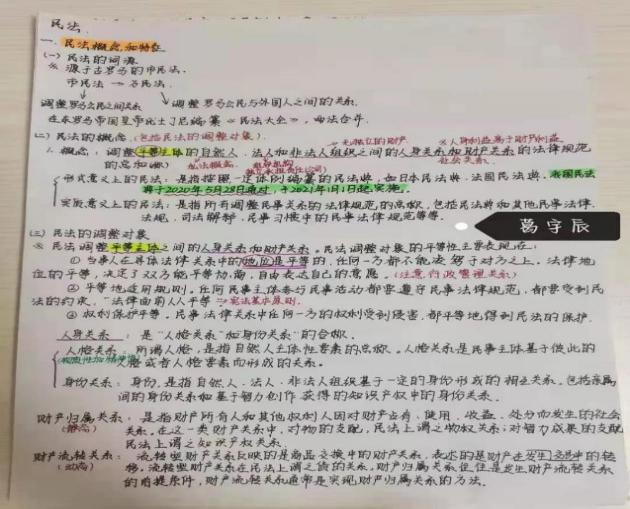 民法.
一、民法概念和特征
(一) 民法的词源
※ 源于古罗马的市民法.
市民法 → 万民法.
调整罗马公民之间关系 调整罗马公民与外国人之间的关系.
在东罗马帝国皇帝优士丁尼编纂《民法大全》,两法合并.
(二) 民法的概念 (包括民法的调整对象).
1. 概念:调整平等主体的自然人、法人和非法人组织之间的人身关系和财产关系的法律规范
的总和
形式意义上的民法:是指按照一定体例编纂的民法典,如日本民法典、法国民法典,我国民法
典于2020年5月28日通过,于2021年1月1日起实施.
实质意义上的民法:是指所有调整民事关系的法律规范的总称,包括民法典和其他民事法律、
法规、司法解释、民事习惯中的民事法律规范等等.
葛宇辰
(三) 民法的调整对象
※ 民法调整平等主体之间的人身关系和财产关系。民法调整对象的平等性主要表现在:
① 当事人在具体法律关系中的地位是平等的,任何一方都不能凌驾于对方之上。法律地
位的平等,决定了双方能平等协商,自由表达自己的意愿。(注意行政管理关系)
② 平等地适用规则。任何民事主体参与民事活动都要遵守民事法律规范,都要受到民
法的约束,"法律面前人人平等"→宪法基本原则.
③ 权利保护平等。民事法律关系中任何一方的权利受到侵害,都平等地得到民法的保护.
人身关系:是"人格关系"和身份关系"的合称.
人格关系:所谓人格,是指自然人主体性要素的总称。人格关系是民事主体基于彼此的
人格或者人格要素而形成的关系。
身份关系:身份,是指自然人、法人、非法人组织基于一定的身份形成的相互关系,包括亲属
间的身份关系和基于智力创作获得的知识产权中的身份关系.
财产归属关系:是指财产所有人和其他权利人因对财产占有、使用、收益、处分而发生的社会
(静态) 关系。在这一类财产关系中,对物的支配,民法上谓之物权关系;对智力成果的支配
民法上谓之知识产权关系.
财产流转关系:流转型财产关系反映的是商品交换中的财产关系,表述的是财产在发生交易中的转
(动态) 移。流转型财产关系在民法上谓之债的关系。财产归属关系往往是发生财产流转关系
的前提条件,财产流转关系通常是实现财产归属关系的方法.